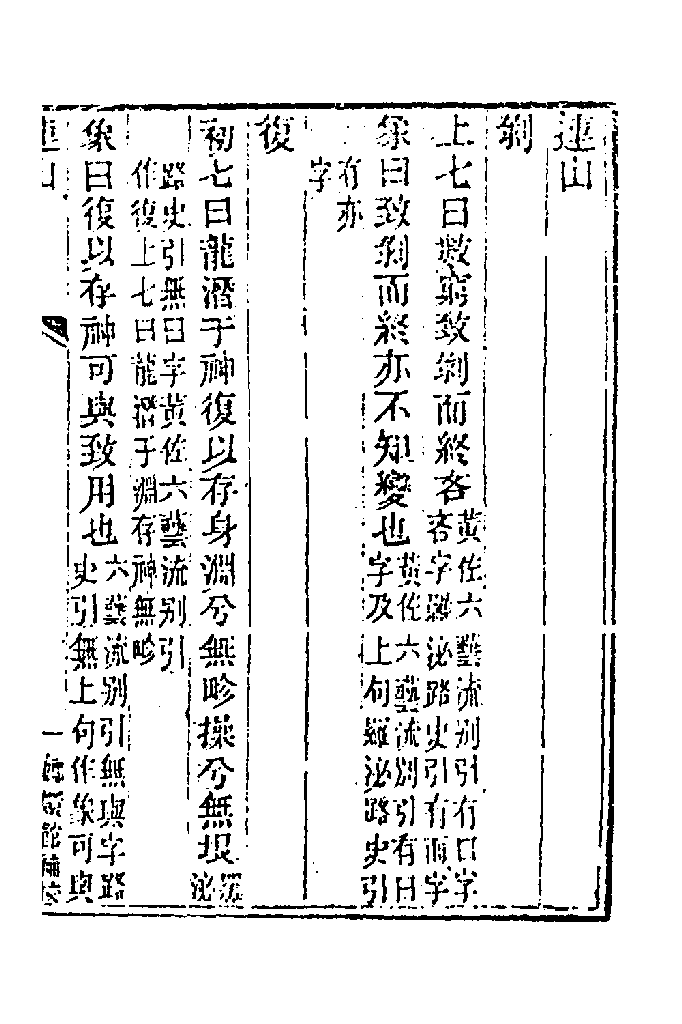 連山
剝
上七曰數窮致剝而終吝黃佐六藝流別引有曰字
吝字羅泌路史引有而字
象曰致剝而終亦不知變也黃佐六藝流別引有曰
字及上句羅泌路史引
有亦
字
復
初七曰龍潛于神復以存身淵兮無畛操兮無垠羅
泌
路史引無曰字黃佐六藝流別引
作復上七曰龍潛于淵存神無畛
象曰復以存神可與致用也六藝流別引無與字路
史引無上句作象可與
連山
一
館補校